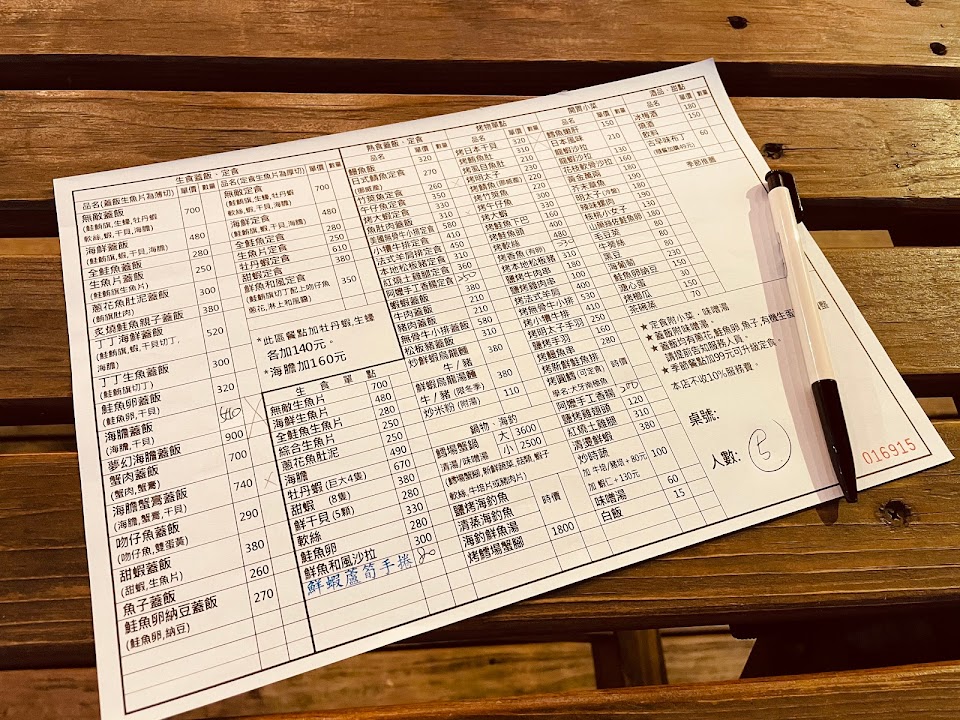 生食蓋飯・定食
品名(蓋飯生魚片為薄切) 單價 數量
無敵蓋飯 700
(鮭鮪旗,生蠔,牡丹蝦
軟絲,蝦,干貝,海膽)
海鮮蓋飯 480
(鮭鮪旗,蝦,干貝,海膽)
全鮭魚蓋飯 280
生魚片蓋飯 250
(鮭鮪旗生魚片)
蔥花魚肚泥蓋飯 300
(鮪旗肚肉)
炙燒鮭魚親子蓋飯 380
丁丁海鮮蓋飯 520
(鮭鮪旗,蝦,干貝切丁,
海膽)
丁丁生魚蓋飯 300
(鮭鮪旗切丁)
鮭魚卵蓋飯 320
(鮭魚卵,干貝)
海膽蓋飯
(海膽,干貝)
夢幻海膽蓋飯 900
蟹肉蓋飯 700
(蟹肉,蟹膏)
海膽蟹膏蓋飯 740
(海膽,蟹膏,干貝)
吻仔魚蓋飯 290
(吻仔魚,雙蛋黃)
甜蝦蓋飯 380
(甜蝦,生魚片)
魚子蓋飯 260
鮭魚卵納豆蓋飯 270
(鮭魚卵,納豆)
品名(定食生魚片為厚切) 單價 數量
無敵定食 700
(鮭鮪旗,生蠔,牡丹蝦
軟絲,蝦,干貝,海膽)
海鮮定食 480
(鮭鮪旗,蝦,干貝,海膽)
全鮭魚定食 280
生魚片定食 250
牡丹蝦定食 610
甜蝦定食 380
鮮魚和風定食 350
(鮭鮪旗切丁配上吻仔魚
蔥花,淋上和風醬)
*此區餐點加牡丹蝦,生蠔
各加140元。
*海膽加160元
生食單點
無敵生魚片 700
海鮮生魚片 480
全鮭魚生魚片 280
綜合生魚片 250
蔥花魚肚泥 250
海膽 490
牡丹蝦(巨大4隻) 670
甜蝦 (8隻) 380
鮮干貝(5顆) 280
軟絲 330
鮭魚卵 280
鮮魚和風沙拉 300
鮮蝦蘆筍手捲 80
熱食蓋飯・定食
品名 單價 數量
鰻魚飯 320
日式鯖魚定食 270
(挪威產)
竹筴魚定食 260
午仔魚定食 350
烤大蝦定食 330
魚肚肉蓋飯
美國無骨牛小排定食 580
小犢牛排定食 410
法式羊肩排定食 450
本地松板豬定食 310
紅燒土雞腿定食 360
阿嬤手工香腸定食
蝦蝦蓋飯 380
牛肉蓋飯 210
豬肉蓋飯 210
無骨牛小排蓋飯 580
松板豬蓋飯 310
炒鮮蝦烏龍麵 380
牛/豬
鮮蝦烏龍湯麵 380
牛/豬 (限冬季)
炒米粉 (附湯) 110
鍋物・海釣
鱈場蟹鍋 大 3600
清湯/味噌湯 小 2500
(鱈場蟹腳,新鮮蔬菜,菇類,蝦子
軟絲,牛培片或豬肉片)
鹽烤海釣魚 時價
清蒸海釣魚
海釣鮮魚湯
烤鱈場蟹腳 1800
烤物單點
品名 單價 數量
烤日本干貝 320
烤鮪魚肚 210
烤虱目魚肚 230
烤明太子
烤鯖魚(挪威產) 220
烤竹筴魚
烤午仔魚
烤大蝦
烤鮭魚下巴
烤鮭魚頭
烤軟絲
烤香魚 (有卵)
烤本地松板豬
鹽烤牛肉串
鹽烤雞肉串
烤法式羊肩
烤無骨牛小排
烤小犢牛排 410
烤明太子手羽 250
鹽烤手羽 160
烤鰻魚串 280
烤新鮮鮭魚排
烤圓鱈 (可定食) 時價
學名:犬牙南極魚
阿嬤手工香腸
鹽烤雞翅頭 120
紅燒土雞腿 310
清燙鮮蝦 380
炒時蔬 100
加 牛培/豬培 +80元
加 蝦仁 +130元
味噌湯 60
白飯 15
開胃小菜
品名 單價 數量
鱈魚嫩肝 150
日本風味 210
龍蝦沙拉
龍蝦沙拉 130
花枝軟骨沙拉 160
黃金福壽
芥末章魚
明太子(冷盤)
辣味螺肉
核桃小女子 130
山藥絲佐鮭魚卵
毛豆莢
牛蒡絲
黑豆
海葡萄
鮭魚卵納豆
溏心蛋 30
烤櫛瓜
茶碗蒸 70
酒品・甜點
品名 單價 數量
冰梅酒 180
燒酒 150
飲料
古早味布丁 60
(隨餐加購49元)
季節推薦
★定食附小菜・味噌湯。
蓋飯附味噌湯。
★蓋飯均有蔥花,鮭魚卵,魚子,有機生蛋
請提前告知服務人員。
★季節餐點加99元可升級定食。
本店不收10%服務費。
桌號:
人數: 5
016915